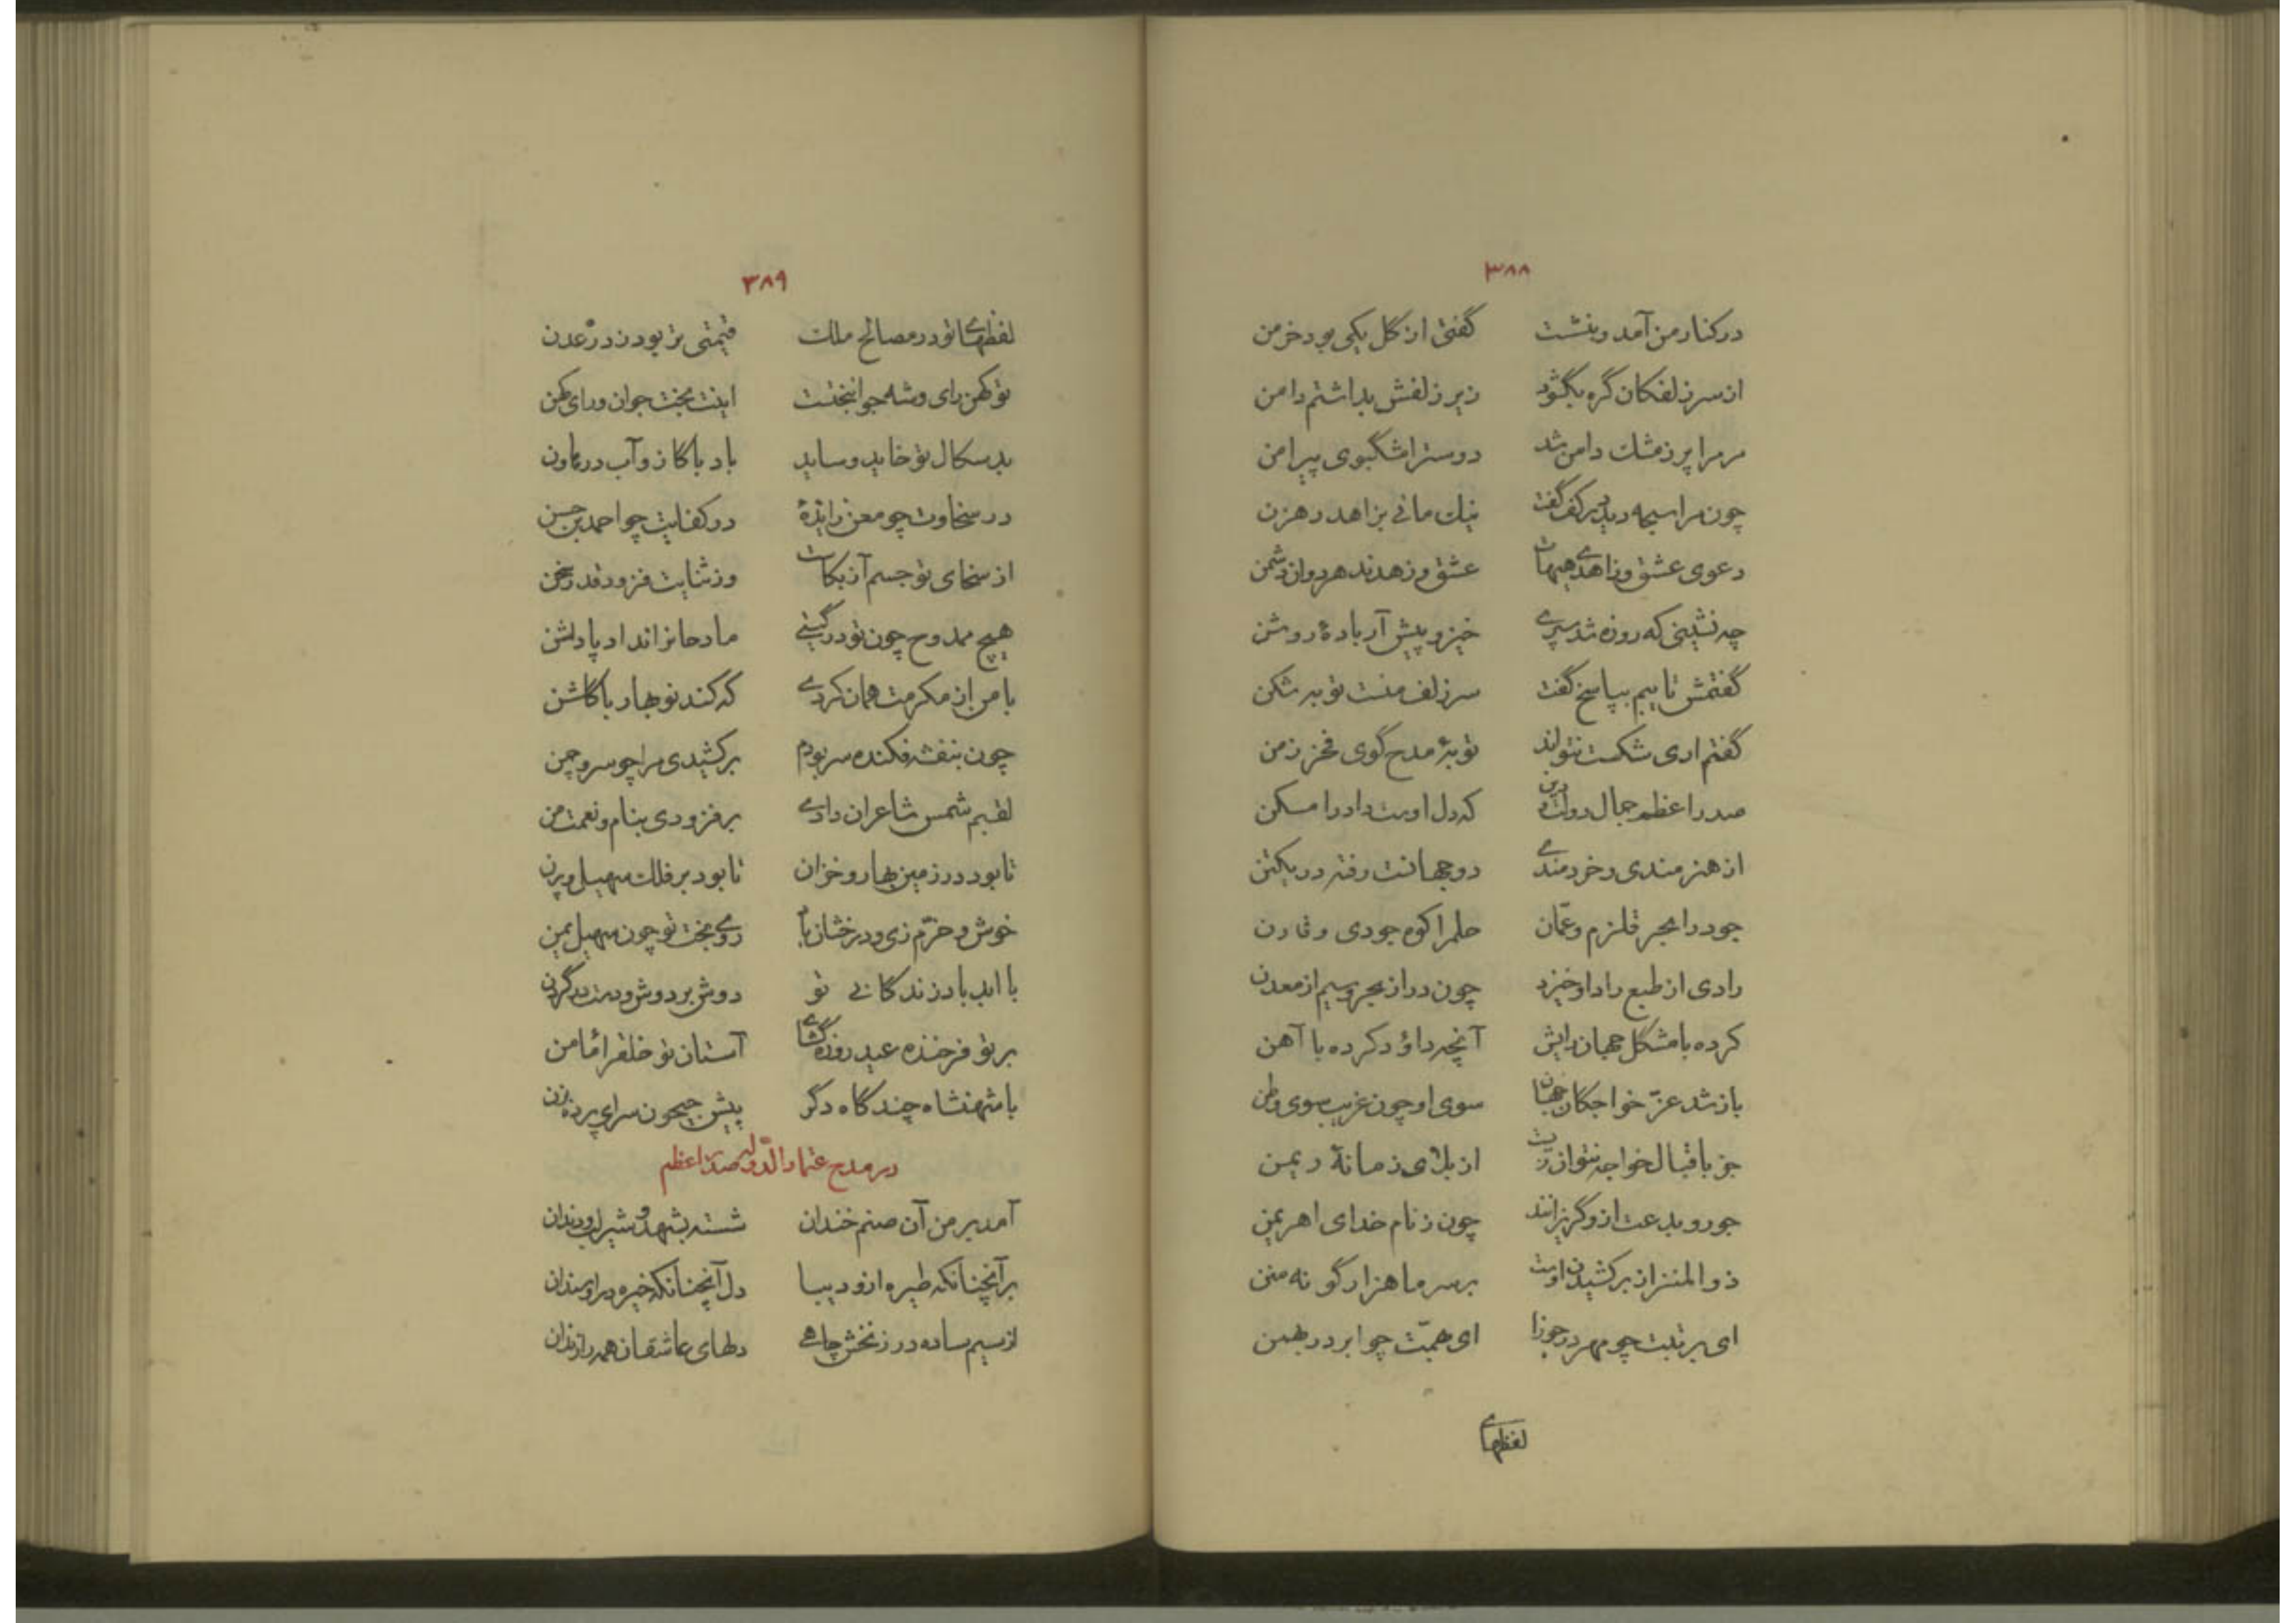 ۳۸۸
در کنار من آمد و بنشست گفتی از گل یکی بود خرمن
از سر زلفکان گره بگشود زیر زلفش بداشتم دامن
مر مرا پر ز مشک دامن شد دوست را مشگبوی پیرامن
چون مرا سبحه دید بر کف گفت نیک مانی بزاهد رهزن
دعوی عشق و زاهدی هیهات عشق و زهدند هر دوان دشمن
چه نشینی که روزه شد سپری خیز و پیش آر بادهٔ روشن
گفتمش تایبم بپاسخ گفت سر زلف منست توبه شکن
گفتم اری شکست نتواند توبهٔ مدح گوی فخر زمن
صدر اعظم جمال دولت و دین که دل اوست داد را مسکن
از هنرمندی و خردمندی دو جهانست رفته در یکتن
جود را بحر قلزم و عمّان حلم را کوه جودی و قارن
رادی از طبع راد او خیزد چون در از بحر و سیم از معدن
کرده با مشگل جهان رایش آنچه داؤد کرده با آهن
باز شد عزّ خواجکان جهان سوی او چون غریب سوی وطن
جز باقبال خواجه نتوان رست از بلای زمانهٔ ریمن
جور و بدعت ازو گریزانند چون ز نام خدای اهریمن
ذوالمنن از برکشیدن اوست بر سر ما هزار گونه منن
ای برتبت چو مهر در جوزا ای بهمّت چو ابر در بهمن
لفظهای
۳۸۹
لفظهای تو در مصالح ملک قیمتی تر بود ز درّ عدن
تو کهن رای و شه جوانبختست اینت بخت جوان و رای کهن
بد سکال تو خاید و ساید باد با کاز و آب در هاون
در سخاوت چو معن زایدهٔ در کفایت چو احمد بن حسن
از سخای تو جسم آز بکاست وز ثنایت فزود قدر سخن
هیچ ممدوح چون تو در گیتی مادحانرا نداد پاداشن
با من از مکرمت همان کردی که کند نوبهار با گلشن
چون بنفشه فکنده سر بودم برکشیدی مرا چو سرو چمن
لقبم شمس شاعران دادی برفزودی بنام و نعمت من
تا بود در زمین بهار و خزان تا بود بر فلک سهیل و پرن
خوش و خرّم زی و درخشان باد روی بخت تو چون سهیل یمن
با ابد باد زندگانی تو دوش بر دوش و دست در گردن
بر تو فرخنده عید روزه گشای آستان تو خلق را مامن
با شهنشاه چند گاه دگر پیش جیحون سرای پرده بزن
در مدح اعتماد الدّوله صدر اعظم
آمد بر من آن صنم خندان شسته بشهد و شیر لب و دندان
بر آنچنانکه طیره ازو دیبا دل آنچنانکه خیره در او سندان
از سیم ساده در زنخش چاهی دلهای عاشقان همه را زندان